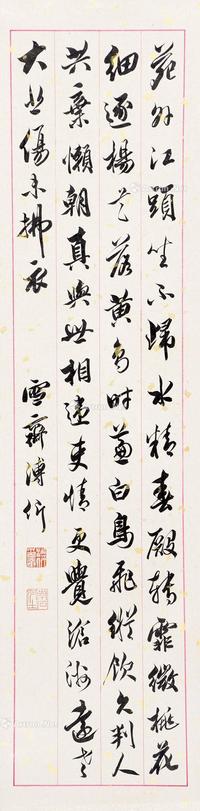 苑外江頭坐不歸水精春殿轉霏微桃花
細逐楊花落黃鳥時兼白鳥飛縱飲久判人
共棄懶朝真與世相違吏情更覺滄洲遠老
大悲傷未拂衣 雪齋溥伒